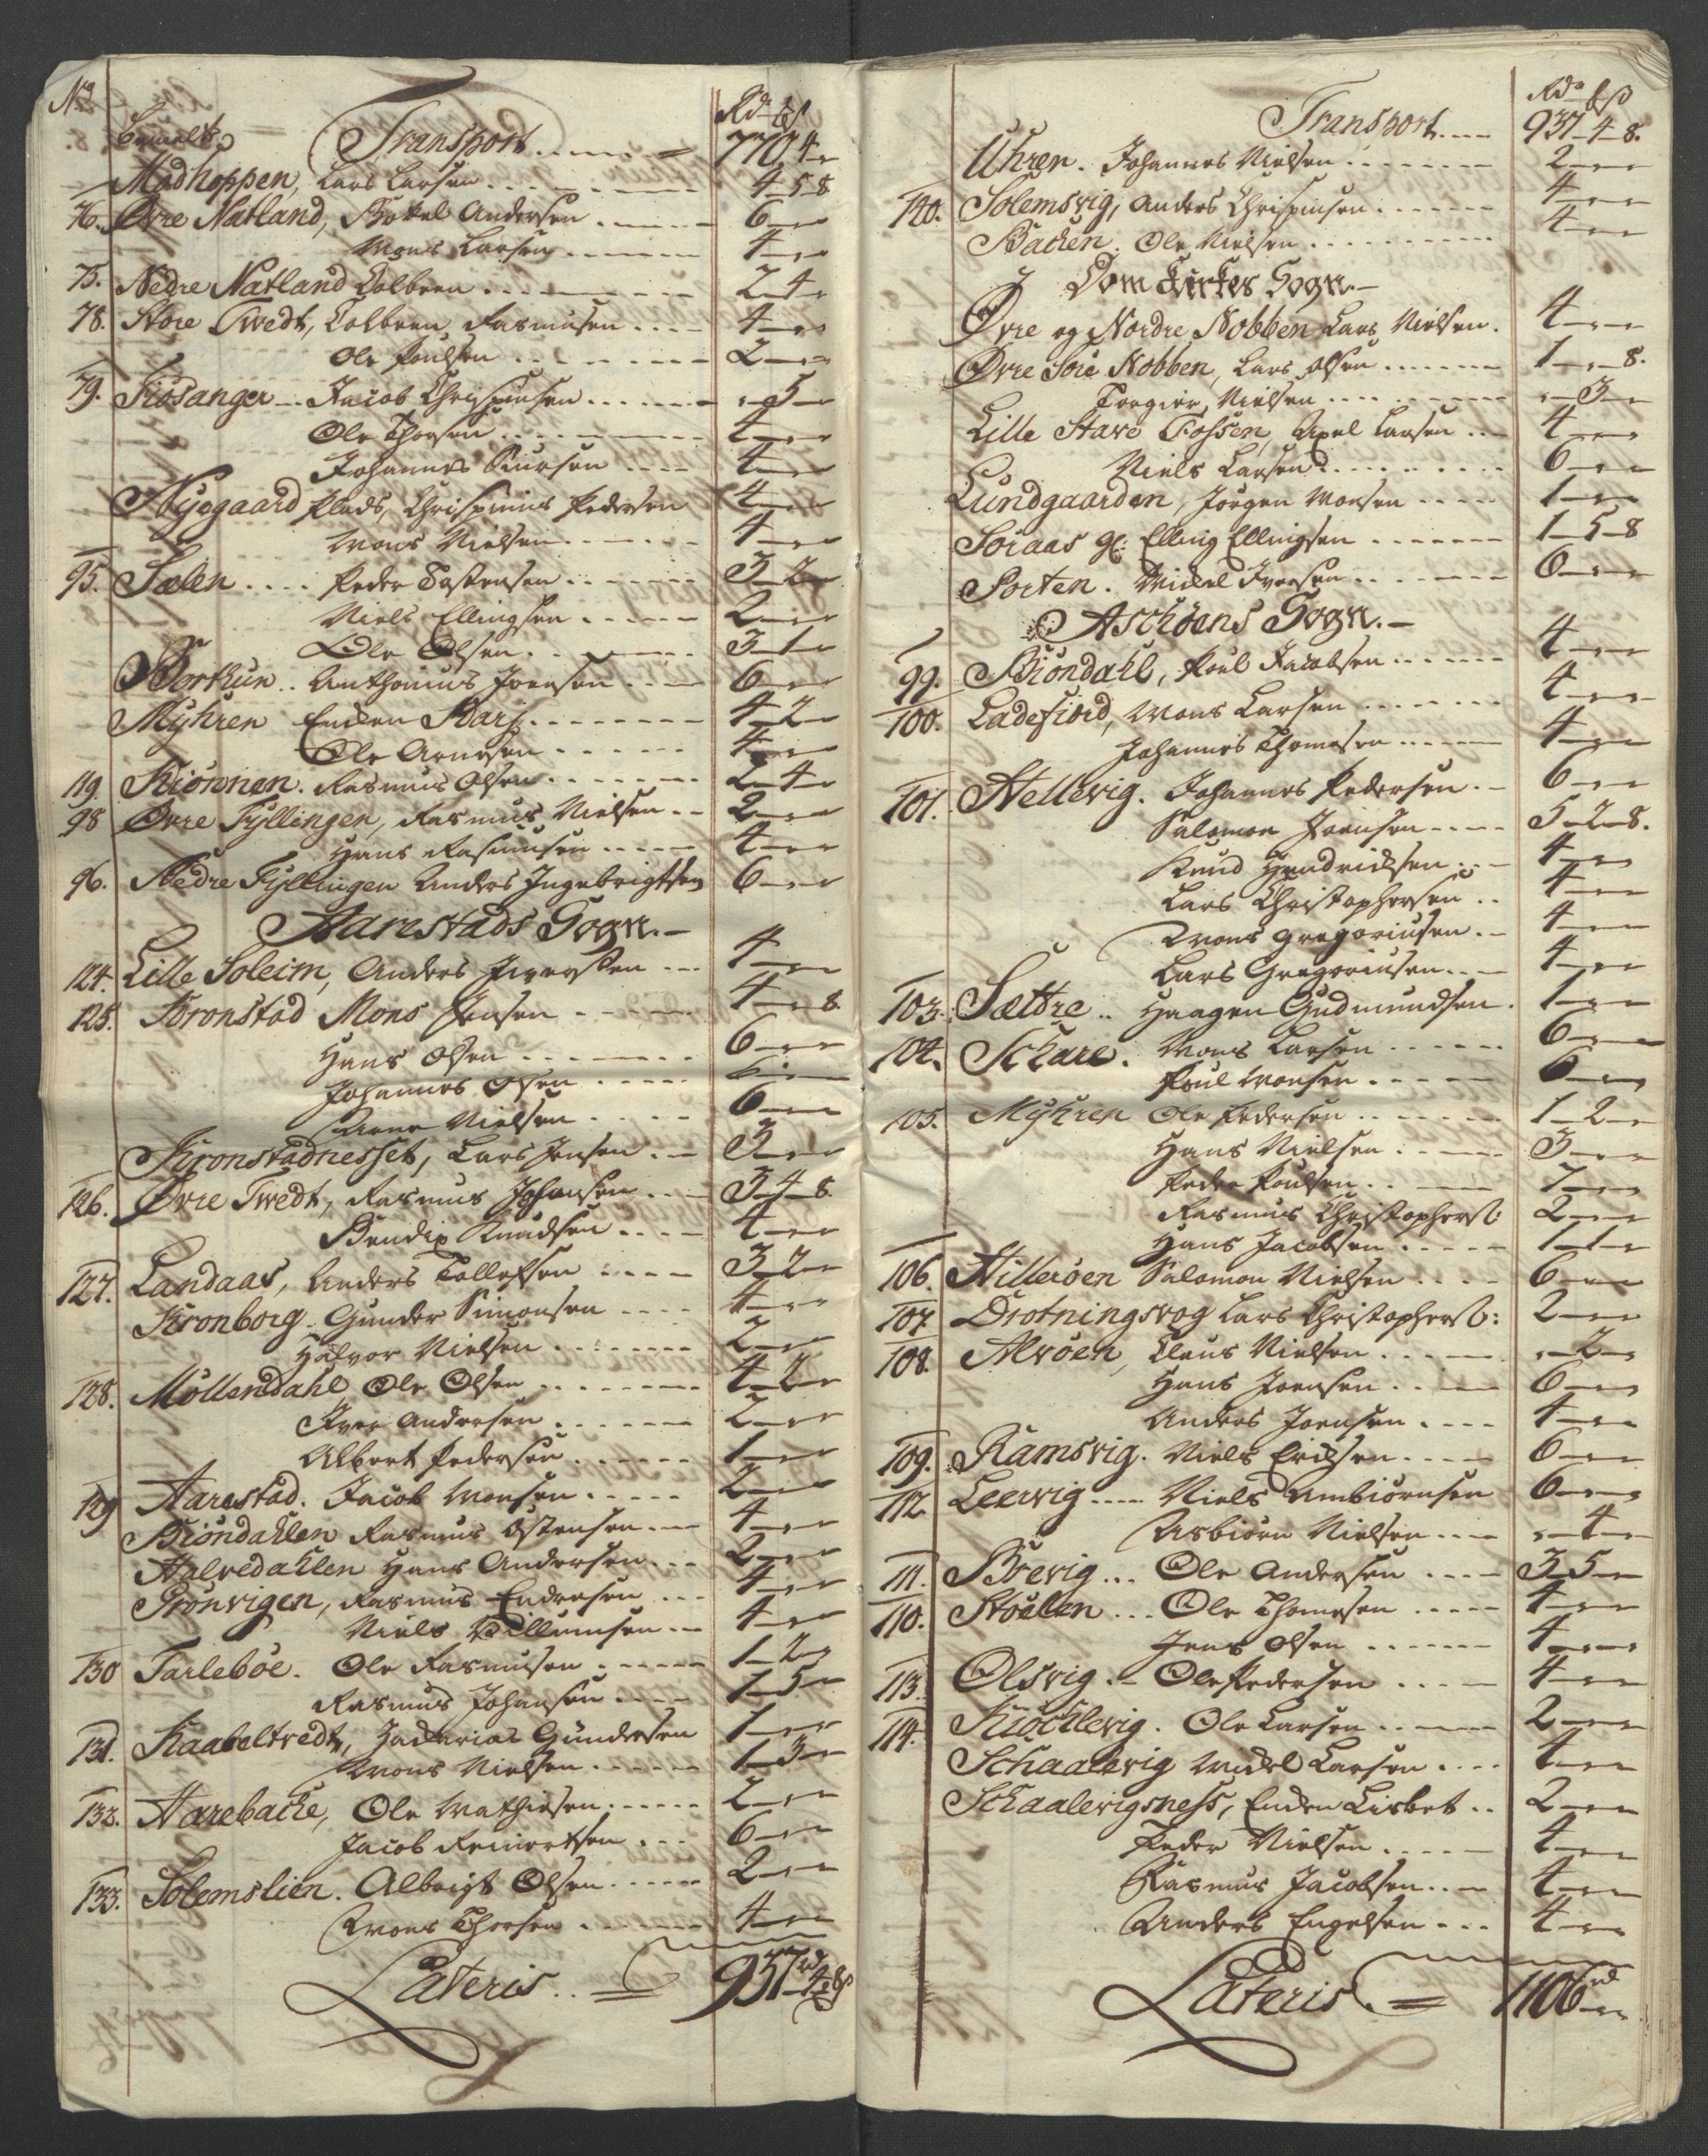 No
Rdr ß
Transport 770 4 "
Madhoppen, Lars Larsen 4 5 8
76. Øvre Natland, Botel Andersen 6 " "
Mons Larsen 4 " "
75. Nedre Natland Colbeen 2 4 "
78. Store Twedt, Colbeen Rasmusen 4 " "
Ole Poulsen 2 " "
79. Fiösanger Jacob Chrispinsen " 5 "
Ole Thorsen 4 " "
Johannes Siursen 4 " "
Nyegaard Plads, Chrispinus Pedersen 4 " "
Mons Nielsen 4 " "
95. Sælen Peder Tostensen 3 2 "
Niels Ellingsen 2 " "
Ole Olsen 3 1 "
Borthun Anthonius Joensen 6 " "
Myhren Enken Kari 4 2 "
Ole Arnesen 4 " "
119. Kiönnen. Rasmus Olsen 2 4 "
98 Øvre Fyllingen, Rasmus Nielsen 2 " "
Hans Rasmusen 4 " "
96. Nedre Fyllingen Anders Ingebrigtsen 6 " "
Aarestads Sogn.
124. Lille Soleim, Anders Iversen 4 " "
125. Kronstad Mons Jensen 4 " 8
Hans Olsen 6 " "
Johannes Olsen 6 " "
Arne Nielsen 6 " "
Kronstadnesset, Lars Jensen 3 " "
126. Øvre Twedt, Rasmus Johansen 3 4 8
Bendix Knudsen 4 " "
127. Landaas, Anders Tollefsen 3 2 "
Kronborg Gunder Simonsen 4 " "
Halvor Nielsen 2 " "
128. Möllendahl, Ole Olsen 4 2 "
Iver Andersen 2 " "
Albert Pedersen 1 " "
129 Aarestad. Jacob Monsen 2 " "
Biöndahlen Rasmus Ostensen 4 " "
Halvedahlen Hans Andersen 2 " "
Grönvigen, Rasmus Endresen 4 " "
Niels Villumsen 4 " "
130 Tarleböe. Ole Rasmusen 1 2 "
Rasmus Johansen 1 5 "
131. Kaabeltvedt, Zacharias Gundersen 1 " "
Mons Nielsen 1 3 "
132. Harebacke, Ole Mathisen 2 " "
Jacob Reinertsen 6 " "
133. Solemslien. Albrigt Olsen 2 " "
Mons Thorsen 4 " "
Lateris 937 rd 4 8 ß
Rdr ß
Transport 937 4 8.
Uhren. Johannes Nielsen 2 " "
140. Solemsvig, Anders Chrispinsen 4 " "
Backen. Ole Nielsen 4 " "
Dom Kirkes Sogn.
Øvre og Nordre Nobben Lars Nielsen. 4 " "
Øvre Söre Nobben, Lars Olsen 1 " 8.
Torgier Nielsen " 3 "
Lille Stave Fossen, Axel Larsen 4 " "
Niels Larsen 6 " "
Lundgaarden, Jörgen Monsen 1 " "
Söraas gl: Elling Ellingsen 1 5 8
Sorten. Mickel Iversen 6 " "
Aschöens Sogn.
99. Biöndahl, Poul Jacobsen 4 " "
100. Ladefiord, Mons Larsen 4 " "
Johannes Thomesen 4 " "
101. Hellevig. Johannes Pedersen. 6 " "
Salomon Joensen 5 2 8.
Knud Hendricksen 4 " "
Lars Christophersen 4 " "
Mons Gregoriusen 4 " "
Lars Gregoriusen 4 " "
103. Sættre Haagen Gudmundsen. 1 " "
104. Schare. Mons Larsen 6 " "
Poul Monsen 6 " "
105. Myhren Ole Pedersen 1 2 "
Hans Nielsen 3 " "
Peder Poulsen 7 " "
Rasmus Christophers: 2 " "
Hans Jacobsen 1 1 "
106. Hilleröen Salomon Nielsen 6 " "
107. Drotningsvog Lars Christophers: 2 " "
108. Alvöen, Claus Nielsen " 2 "
Hans Joensen 6 " "
Anders Joensen 4 " "
109. Ramsvig. Niels Ericksen 6 " "
112. Leervig Niels Ambiörnsen 6 " "
Asbiörn Nielsen " 4 "
111. Brevig Ole Andersen 3 5 "
110. Stöelen Ole Thomesen 4 " "
Jens Olsen 4 " "
113. Olsvig. Ole Pedersen 4 " "
114. Kiöchlevig. Ole Larsen 2 " "
Schaalevig Mickel Larsen 4 " "
Schaalevigsness, Enken Lisbet 2 " "
Peder Nielsen 4 " "
Rasmus Jacobsen 4 " "
Anders Engelsen 4 " "
Lateris 1106 rd " "